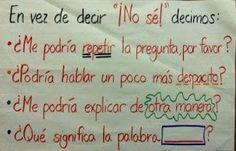 En vez de decir "¡No sé!" decimos:
• ¿Me podría repetir la pregunta, por favor?
• ¿Podría hablar un poco más despacito?
• ¿Me podría explicar de otra manera?
• ¿Qué significa la palabra ?